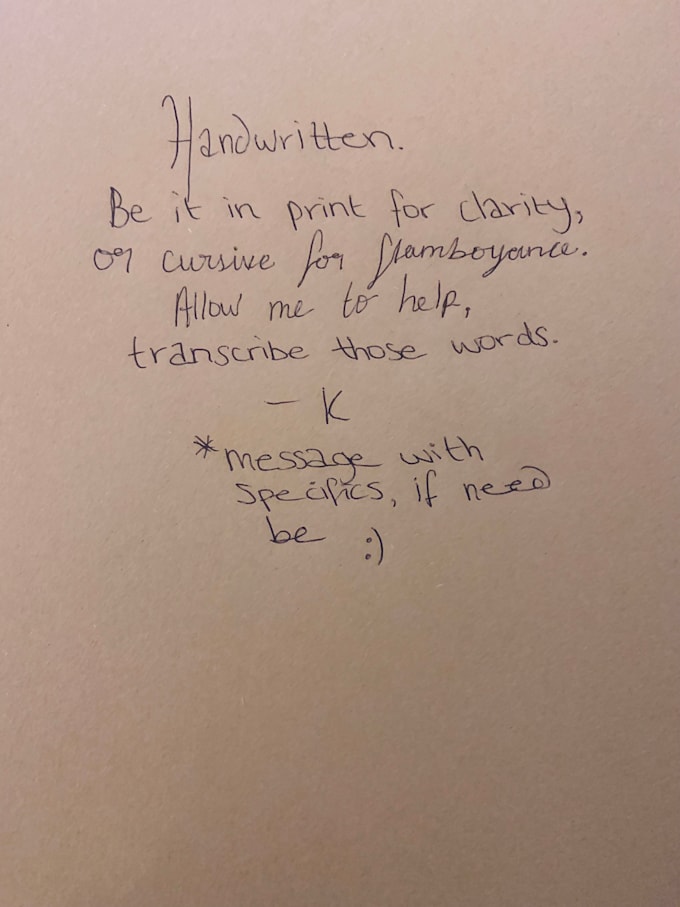 Handwritten.
Be it in print for clarity,
or cursive for flamboyance.
Allow me to help,
transcribe those words.
- K
*message with
specifics, if need
be :)